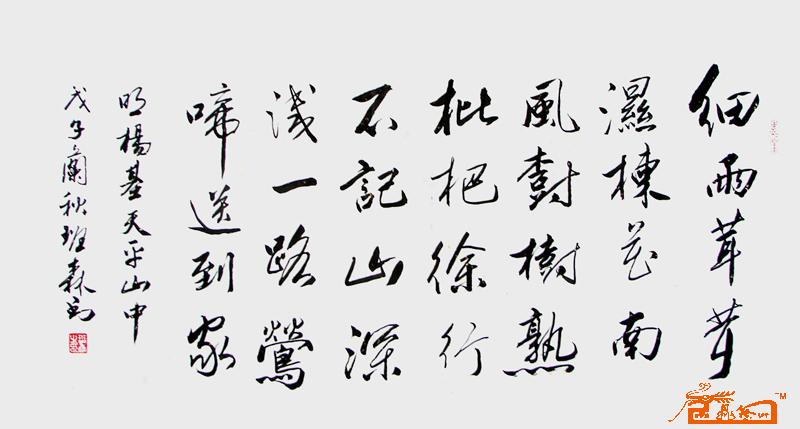 細雨茸茸
濕楝花南
風樹樹熟
枇杷徐行
不記山深
淺一路鶯
啼送到家
明楊基天平山中
戊子蘭秋班森
TM